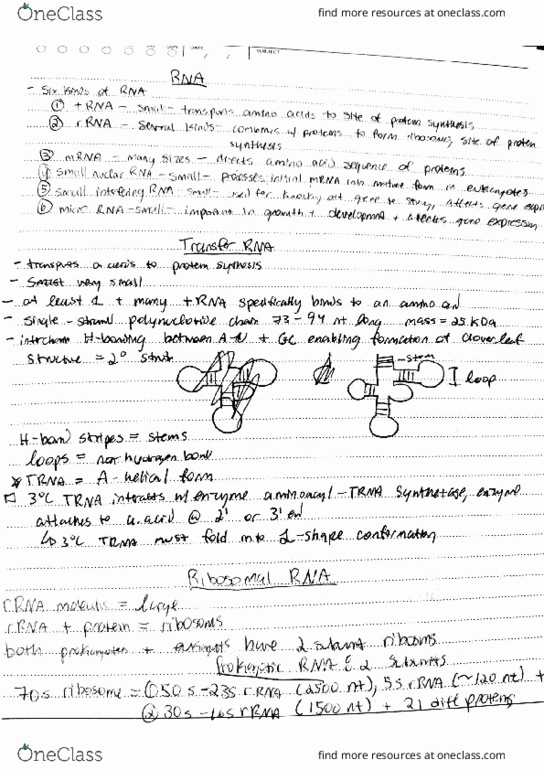 OneClass
find more resources at oneclass.com
SUBJECT
RNA
- Six kinds of RNA
① tRNA - small - transports amino acids to site of protein synthesis
② rRNA - several kinds - combines w/ proteins to form ribosomes, site of protein
synthesis
③ mRNA - many sizes - directs amino acid sequence of proteins
④ small nuclear RNA - small - processes initial mRNA into mature form in eukaryotes
⑤ small interfering RNA - small - used for knocking out gene to study, affects gene expr
⑥ micro RNA - small - important in growth + development + affects gene expression
Transfer RNA
- transports a acids to protein synthesis
- smallest very small
- at least 1 + many tRNA specifically binds to an amino acid
- single-strand polynucleotide chain 73-94 nt long mass = 25 kDa
- intrachain H-bonding between A-U + GC enabling formation of cloverleaf
structure = 2° struct
- stem
loop
H-bond stripes = stems
loops = non hydrogen bond
TRNA = A-helical form
3°C TRNA interacts w/ enzyme aminoacyl-TRNA synthetase, enzyme
attaches to a.acid @ 2' or 3' end
↳ 3°C TRNA must fold into L-shape conformation
Ribosomal RNA
rRNA molecules = large
rRNA + protein = ribosomes
both prokaryotes + eukaryotes have 2 subunit ribosomes
Prokaryotic RNA & 2 subunits
70s ribosome = ① 50s - 23s rRNA (2500 nt), 5s rRNA (~120 nt) +
② 30s - 16s rRNA (1500 nt) + 21 diff proteins
OneClass
find more resources at oneclass.com